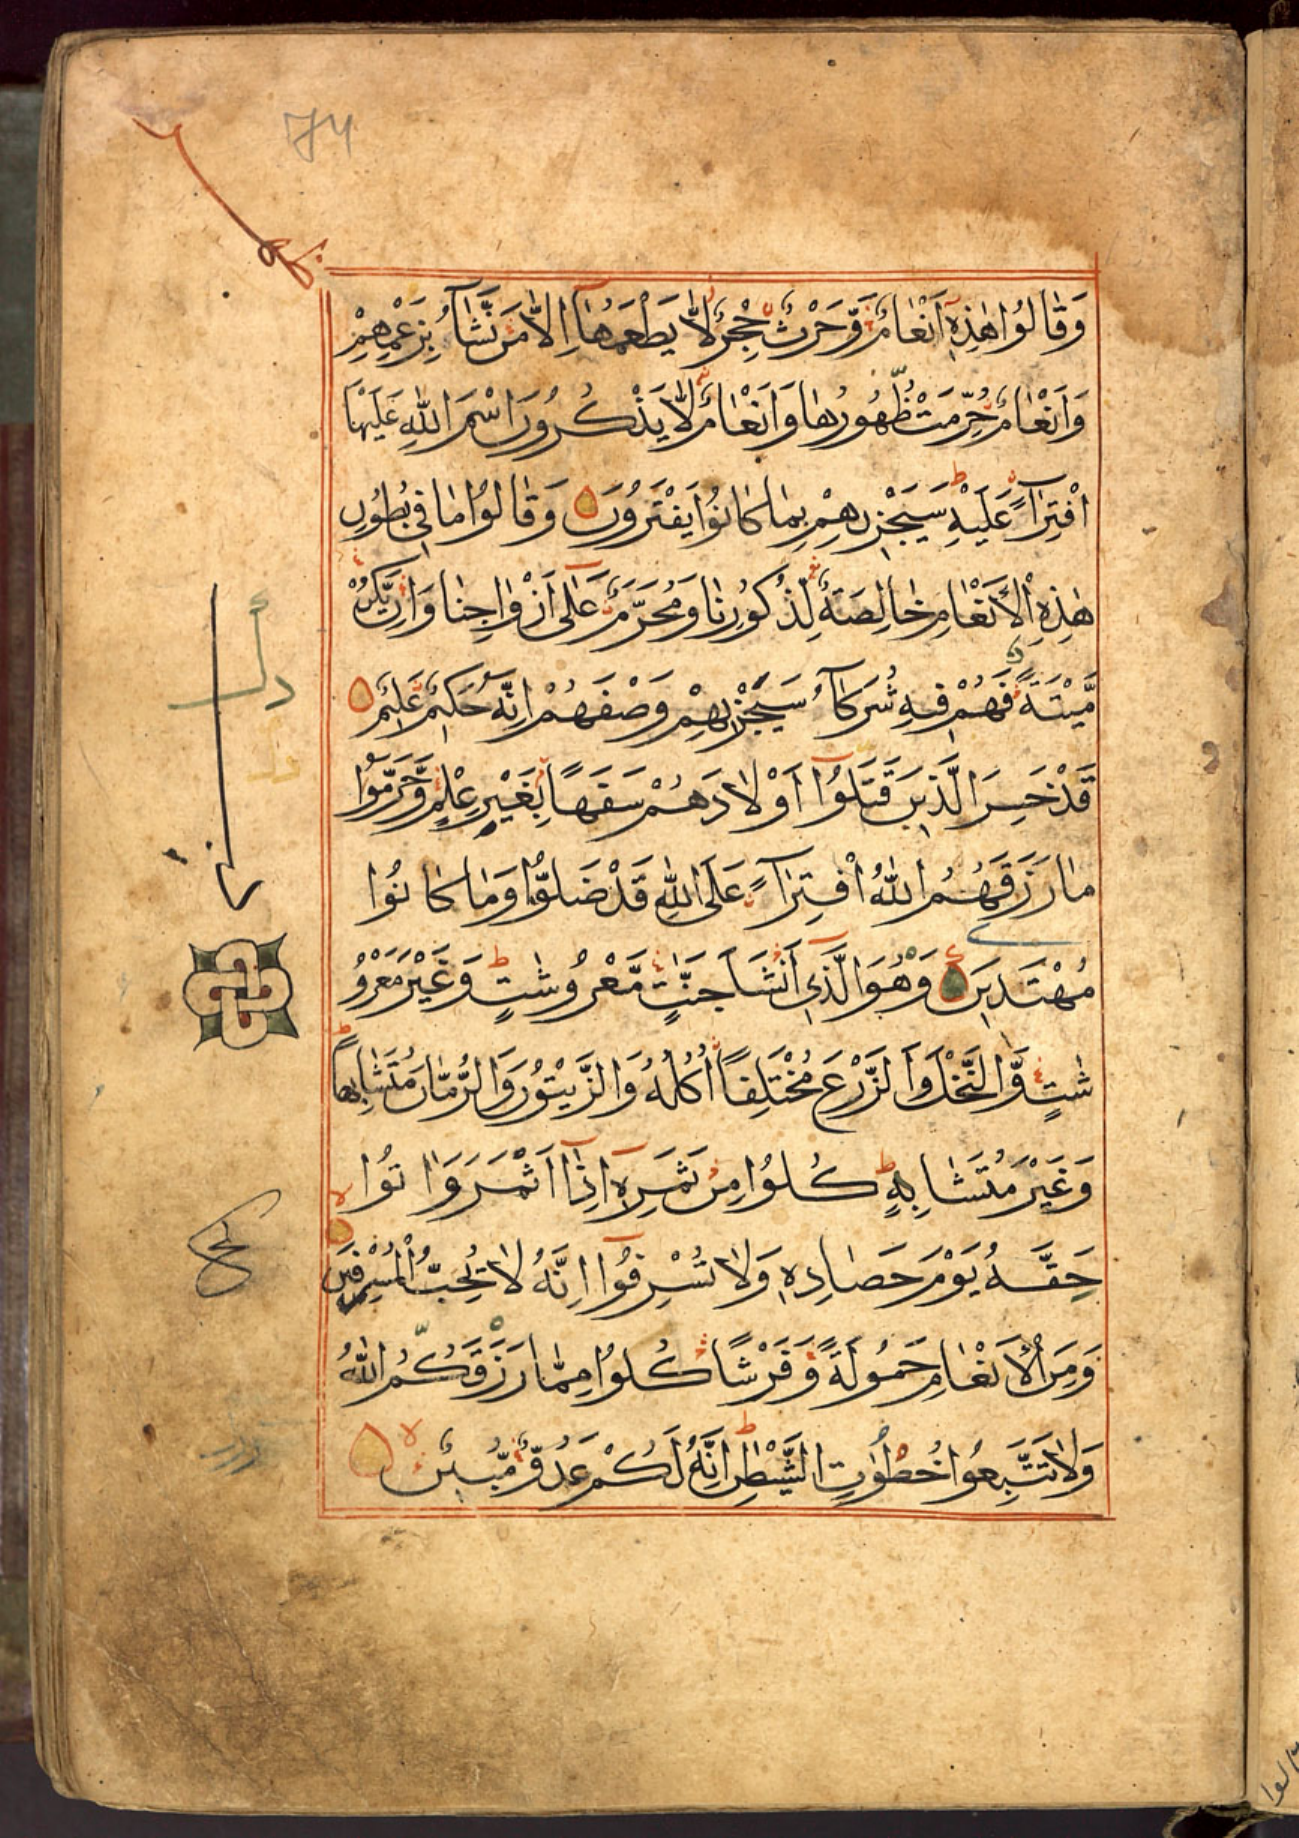 74
وَقَالُوا هٰذِهِ اَنْعَامٌ وَّحَرْثٌ حِجْرٌ لَّا يَطْعَمُهَا اِلَّا مَنْ نَّشَآءُ بِزَعْمِهِمْ
وَاَنْعَامٌ حُرِّمَتْ ظُهُورُهَا وَاَنْعَامٌ لَّا يَذْكُرُونَ اسْمَ اللّٰهِ عَلَيْهَا
افْتِرَآءً عَلَيْهِ سَيَجْزِيهِمْ بِمَا كَانُوا يَفْتَرُونَ وَقَالُوا مَا فِي بُطُونِ
هٰذِهِ الْاَنْعَامِ خَالِصَةٌ لِّذُكُورِنَا وَمُحَرَّمٌ عَلٰى اَزْوَاجِنَا وَاِنْ يَّكُنْ
مَّيْتَةً فَهُمْ فِيهِ شُرَكَآءُ سَيَجْزِيهِمْ وَصْفَهُمْ اِنَّهُ حَكِيمٌ عَلِيمٌ
قَدْ خَسِرَ الَّذِينَ قَتَلُوا اَوْلَادَهُمْ سَفَهًا بِغَيْرِ عِلْمٍ وَّحَرَّمُوا
مَا رَزَقَهُمُ اللّٰهُ افْتِرَآءً عَلَى اللّٰهِ قَدْ ضَلُّوا وَمَا كَانُوا
مُهْتَدِينَ وَهُوَ الَّذِي اَنْشَاَ جَنّٰتٍ مَّعْرُوشٰتٍ وَغَيْرَ مَعْرُو
شٰتٍ وَّالنَّخْلَ وَالزَّرْعَ مُخْتَلِفًا اُكُلُهُ وَالزَّيْتُونَ وَالرُّمَّانَ مُتَشَابِهًا
وَغَيْرَ مُتَشَابِهٍ كُلُوا مِنْ ثَمَرِهِ اِذَا اَثْمَرَ وَاٰتُوا
حَقَّهُ يَوْمَ حَصَادِهِ وَلَا تُسْرِفُوا اِنَّهُ لَا يُحِبُّ الْمُسْرِفِينَ
وَمِنَ الْاَنْعَامِ حَمُولَةً وَّفَرْشًا كُلُوا مِمَّا رَزَقَكُمُ اللّٰهُ
وَلَا تَتَّبِعُوا خُطُوٰتِ الشَّيْطٰنِ اِنَّهُ لَكُمْ عَدُوٌّ مُّبِينٌ